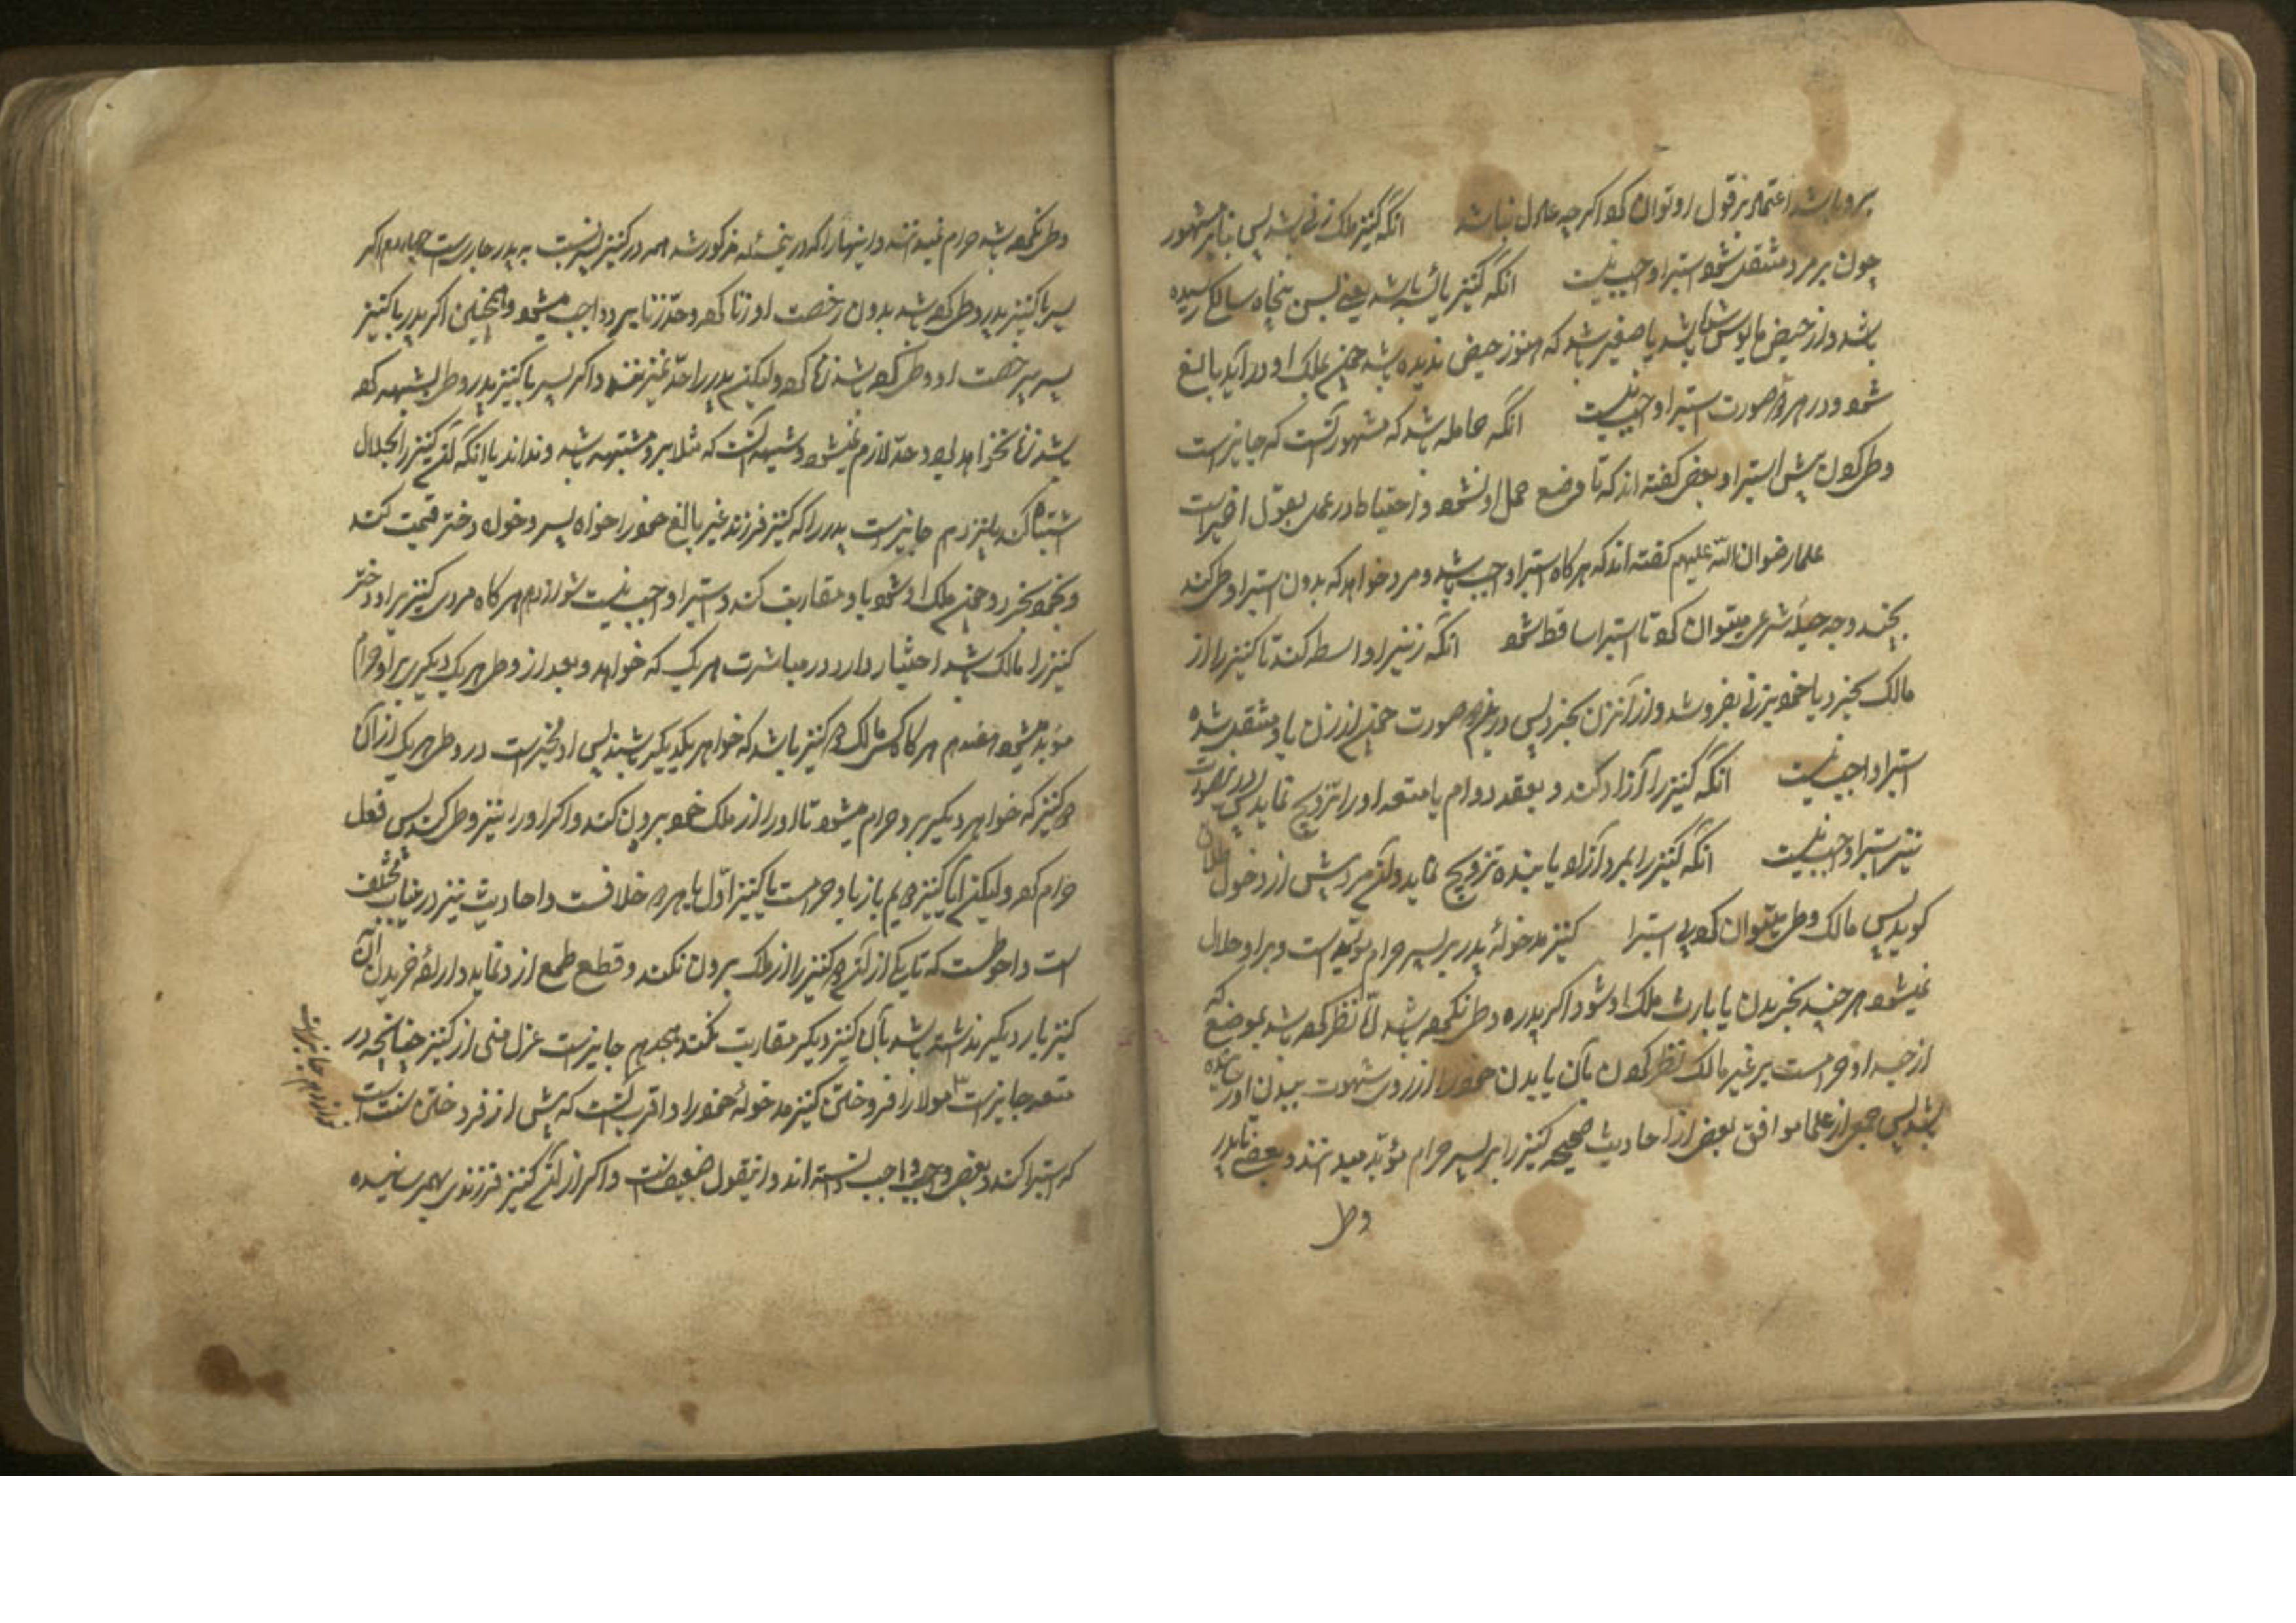 برو باشد اعتماد بر قول او توان کرد اگر چه عادل نباشد انکه کنیز ملک زنی باشد پس بنابر مشهور
چون بر مرد منتقل شود استبرا واجب نیست انکه کنیز یائسه باشد یعنی بسن پنجاه سالکی رسیده
باشد و از حیض مایوس شده باشد یا صغیر باشد که هنوز حیض ندیده باشد بملک او در آید بالغ
شود و در هر دو صورت استبرا واجب نیست انکه حامله باشد که مشهور آنست که جایز است
وطی کردن پیش استبرا و بعضی کفته اند که تا وضع حمل او نشود و احتیاط در عمل بقول اخیر است
علما رضوان الله علیهم کفته اند که هر کاه استبرا واجب باشد و مرد خواهد که بدون استبرا وطی کند
بچند وجه حیله شرعی میتوان کرد تا استبرا ساقط شود انکه زنیرا واسطه کند تا کنیز را از
مالک بخرد یا خود بزنی بفروشد و از آنزن بخرد پس درین صورت چون از زن باو منتقل شده
استبرا واجب نیست انکه کنیز را آزاد کند و بعقد دوام یا متعه او را تزویج نماید پس درینصورت
نیز استبرا واجب نیست انکه کنیز را بمرد آزاد یا بنده تزویج نماید و آنمرد پیش از دخول طلاق
کوید پس مالک وطی میتوان کرد بی استبرا کنیز مدخوله پدر بر پسر حرام مؤبد است و براو حلال
نمیشود هر چند بخریدن یا بارث ملک او شود و اکر پدر وطی نکرده باشد اما نظر کرده باشد بموضعی که
از جسد او حرامست بر غیر مالک نظر کردن بآن یا بدن خود را از روی شهوت ببدن او رسانیده
باشد پس جمعی از علما موافق بعضی از احادیث صحیحه کنیز را بر پسر حرام مؤبد میدانند و بعضی تا پدر
وطی
وطی نکرده باشد حرام نمیدانند و اینها را که در ین مسئله مذکور شد همه در کنیز پسر نسبت به پدر جاریست چهاردهم اکر
پسر با کنیز پدر وطی کرده باشد بدون رخصت او زنا کرده و حد زنا بر او واجب میشود و همچنین اکر پدر با کنیز
پسر بی رخصت او وطی کرده باشد زنا کرده ولیکن پدر را حد نمیزنند و اکر پسر با کنیز پدر وطی بشبهه کرده
باشد زنا نخواهد بود و حد لازم نمیشود و شبهه آنست که مثلا برو مشتبه باشد و نداند یا انکه آن کنیز را بحلال
اشتباه کند پانزدهم جایز است پدر را که کنیز فرزند غیر بالغ خود را خواه پسر و خواه دختر قیمت کند
و بخود بخرد و چون ملک او شود با او مقاربت کند و استبرا واجب نیست شانزدهم هر کاه مردی کنیز برا و دختر
کنیز را مالک باشد اختیار دارد در مباشرت هر یک که خواهد و بعد از وطی هر یک دیکری براو حرام
مؤبد میشود هفدهم هر کاه کسی مالک دو کنیز باشد که خواهر یکدیکر باشند پس او مخیر است در وطی هر یک از آن
دو کنیز که خواهر دیکر برو حرام میشود تا او را از ملک خود برون کند و اکر او را نیز وطی کند پس فعل
حرام کرده ولیکن ایا کنیز دویم باز باو حرامست یا کنیز اول یا هر دو خلافست و احادیث نیز درینباب مختلف
است و احوط آنست که تا یکی از آن دو کنیز را از ملک برون نکند و قطع طمع از و ننماید و اراده خریدن آن
کنیز بار دیکر نداشته باشد بآن کنیز دیکر مقاربت نکند هیجدهم جایز است عزل منی از کنیز چنانچه در
متعه جایز است مولا را فروختن کنیز مدخوله خود را و اقرب آنست که پیش از فروختن سنت است
که استبرا کند و بعضی واجب دانسته اند و اینقول ضعیف نیست و اکر از آن کنیز فرزندی بهم رسانیده
نوزدهم جایز است